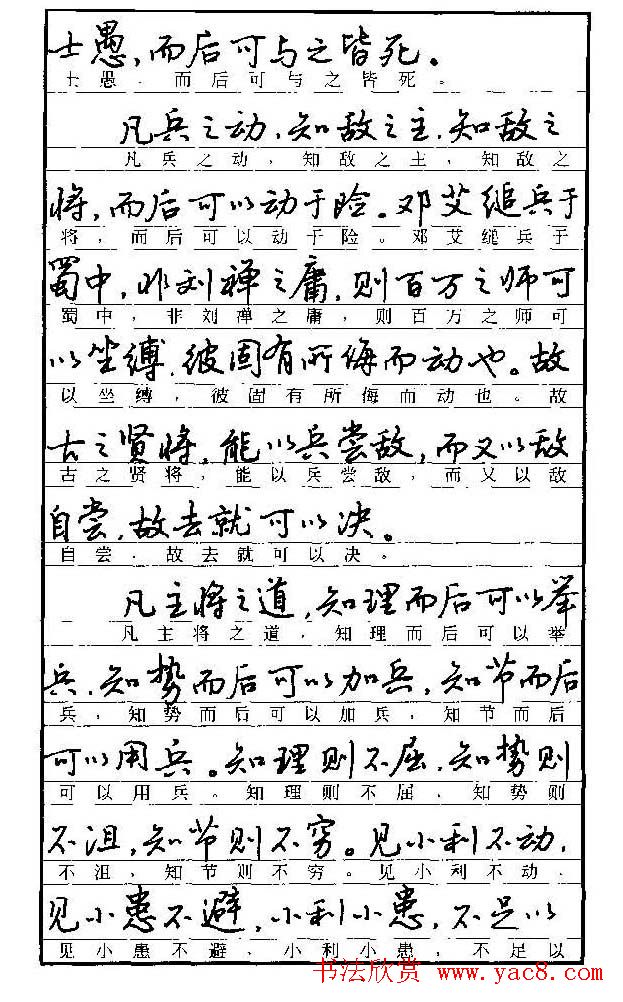 士愚，而后可与之皆死。
士愚，而后可与之皆死。
凡兵之动，知敌之主，知敌之
凡兵之动，知敌之主，知敌之
将，而后可以动于险。邓艾缒兵于
将，而后可以动于险。邓艾缒兵于
蜀中，非刘禅之庸，则百万之师可
蜀中，非刘禅之庸，则百万之师可
以坐缚，彼固有所侮而动也。故
以坐缚，彼固有所侮而动也。故
古之贤将，能以兵尝敌，而又以敌
古之贤将，能以兵尝敌，而又以敌
自尝，故去就可以决。
自尝，故去就可以决。
凡主将之道，知理而后可以举
凡主将之道，知理而后可以举
兵，知势而后可以加兵，知节而后
兵，知势而后可以加兵，知节而后
可以用兵。知理则不屈，知势则
可以用兵。知理则不屈，知势则
不沮，知节则不穷。见小利不动，
不沮，知节则不穷。见小利不动，
见小患不避，小利小患，不足以
见小患不避，小利小患，不足以
书法欣赏 www.yac8.com